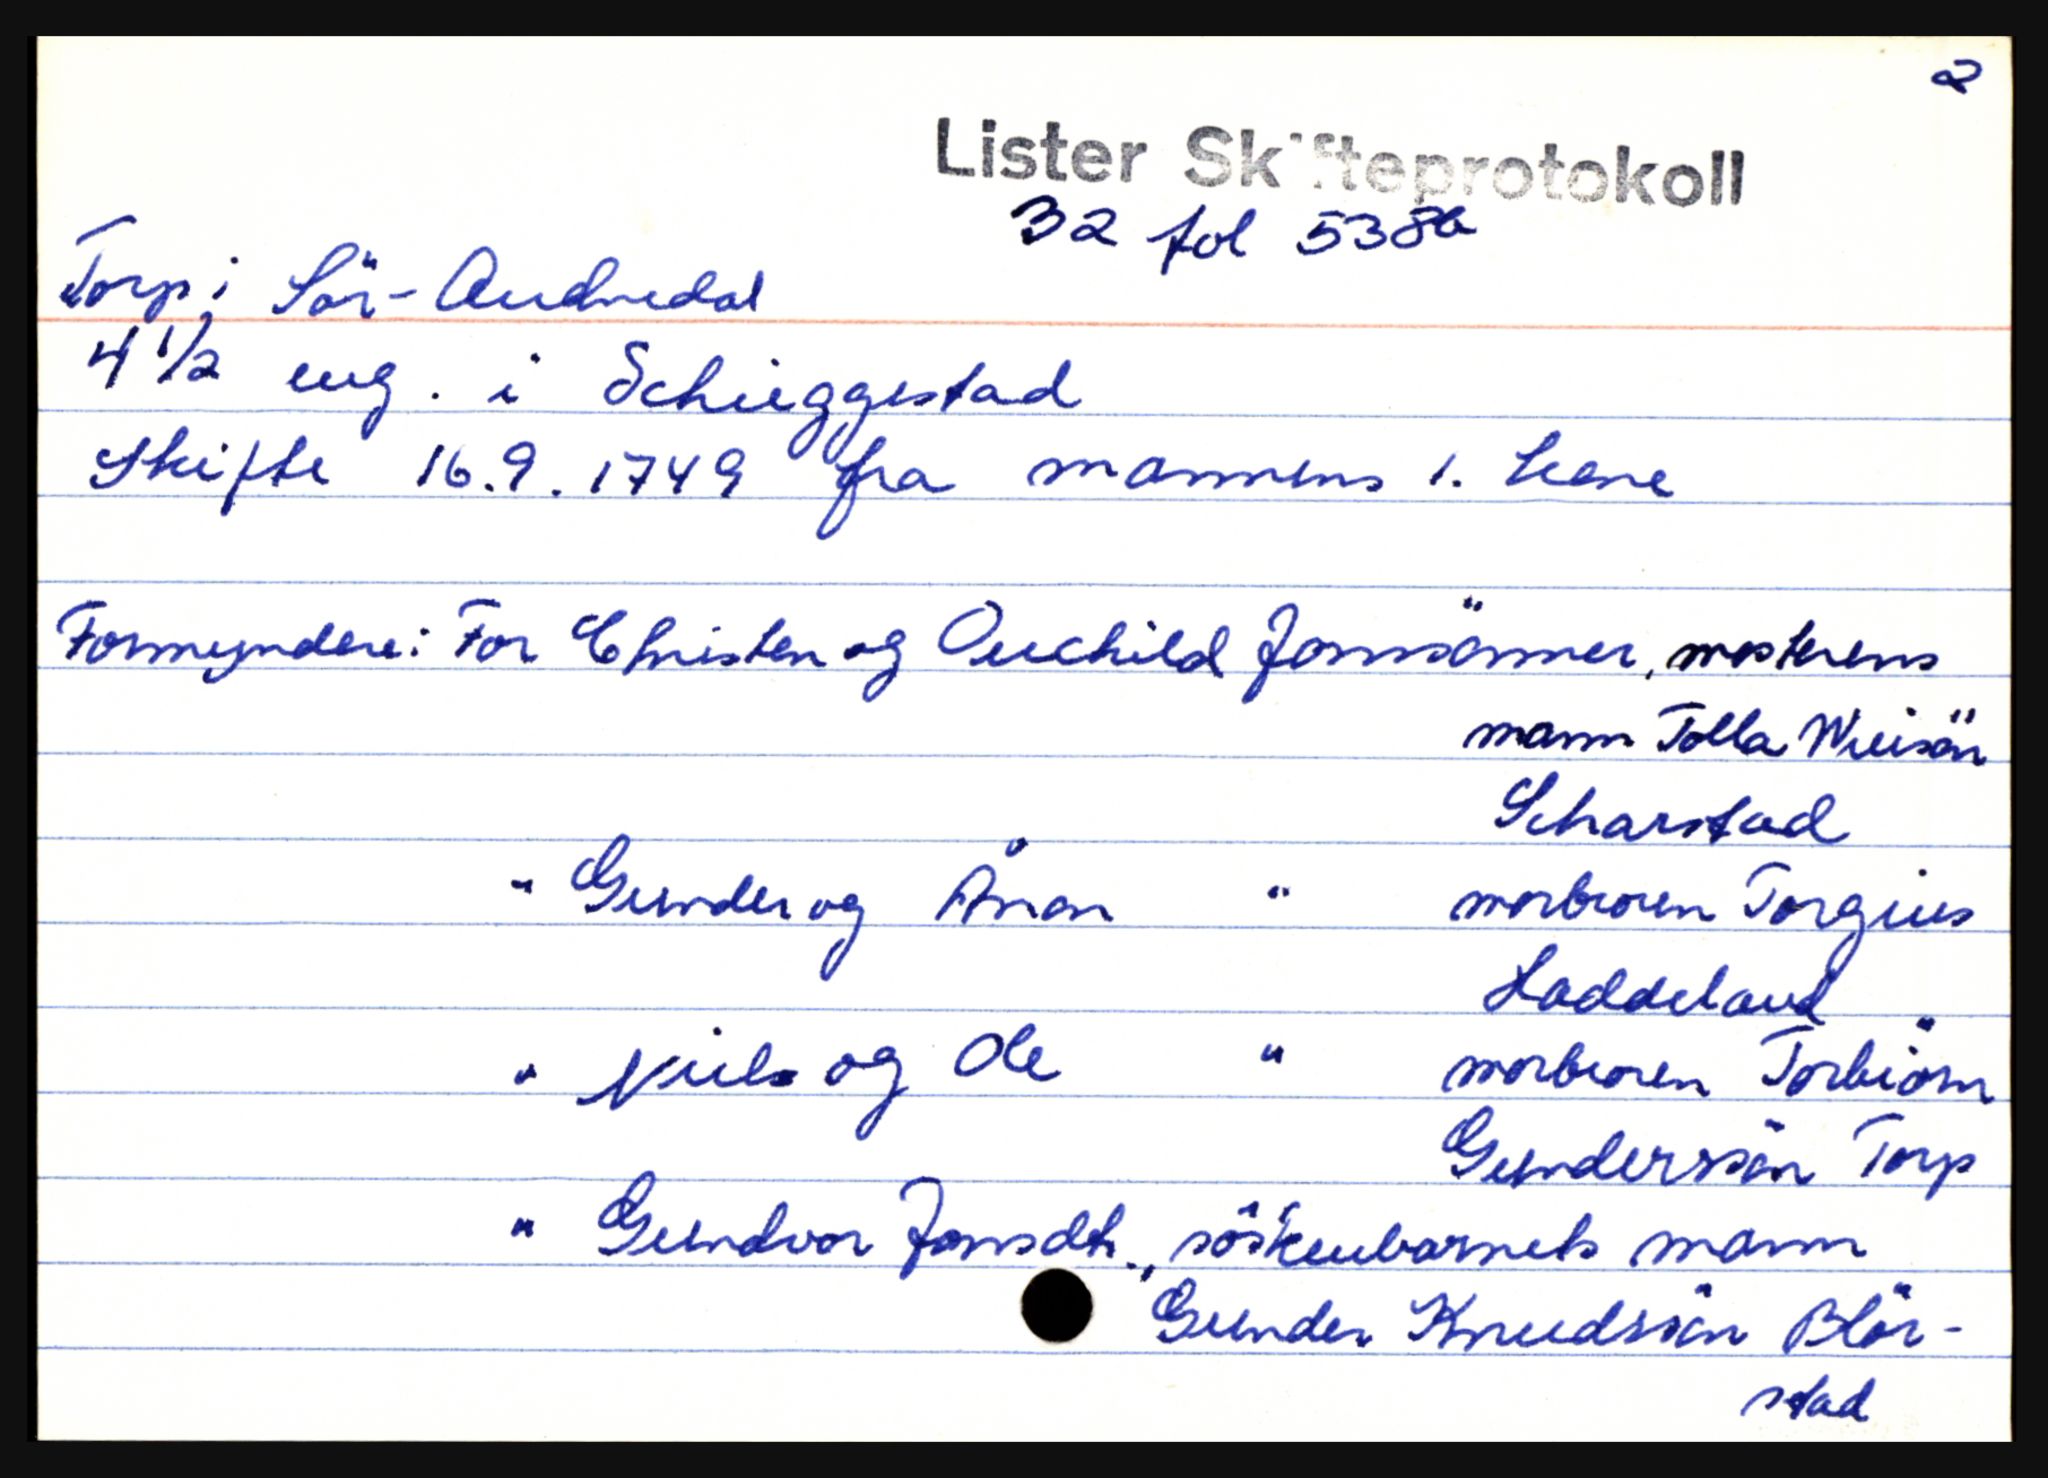 2
Lister Skifteprotokoll
32 fol 538b
Torp i Sör-Audnedal
4 1/2 eng. i Schieggestad
Skifte 16.9.1749 fra mannens 1. kone
Formyndere: For Christen og Ouchild Jonssönner, mosterens
mann Tolla Wiisön
Scharstad
" Gunder og Ånon " morbroren Torgius
Haddeland
" Niels og Ole " morbroren Torbiörn
Gundersön Torp
" Gundvor Jonsdtr., söskenbarnets mann
Gunder Knudsön Blör-
stad